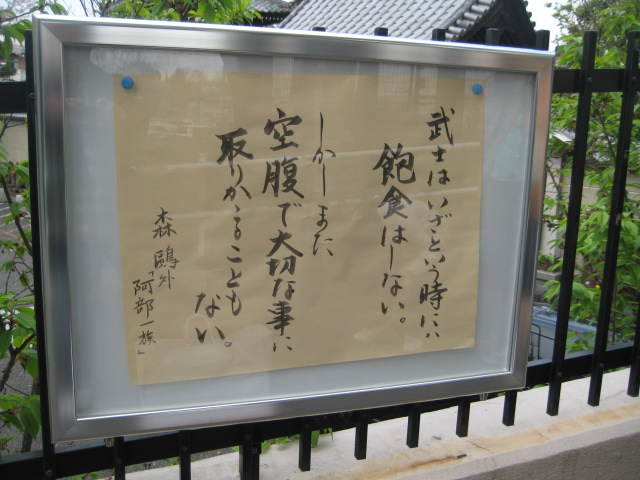 武士はいざという時には
飽食はしない。
しかしまた
空腹で大切な事に
取りかゝることも
ない。
森鷗外
「阿部一族」